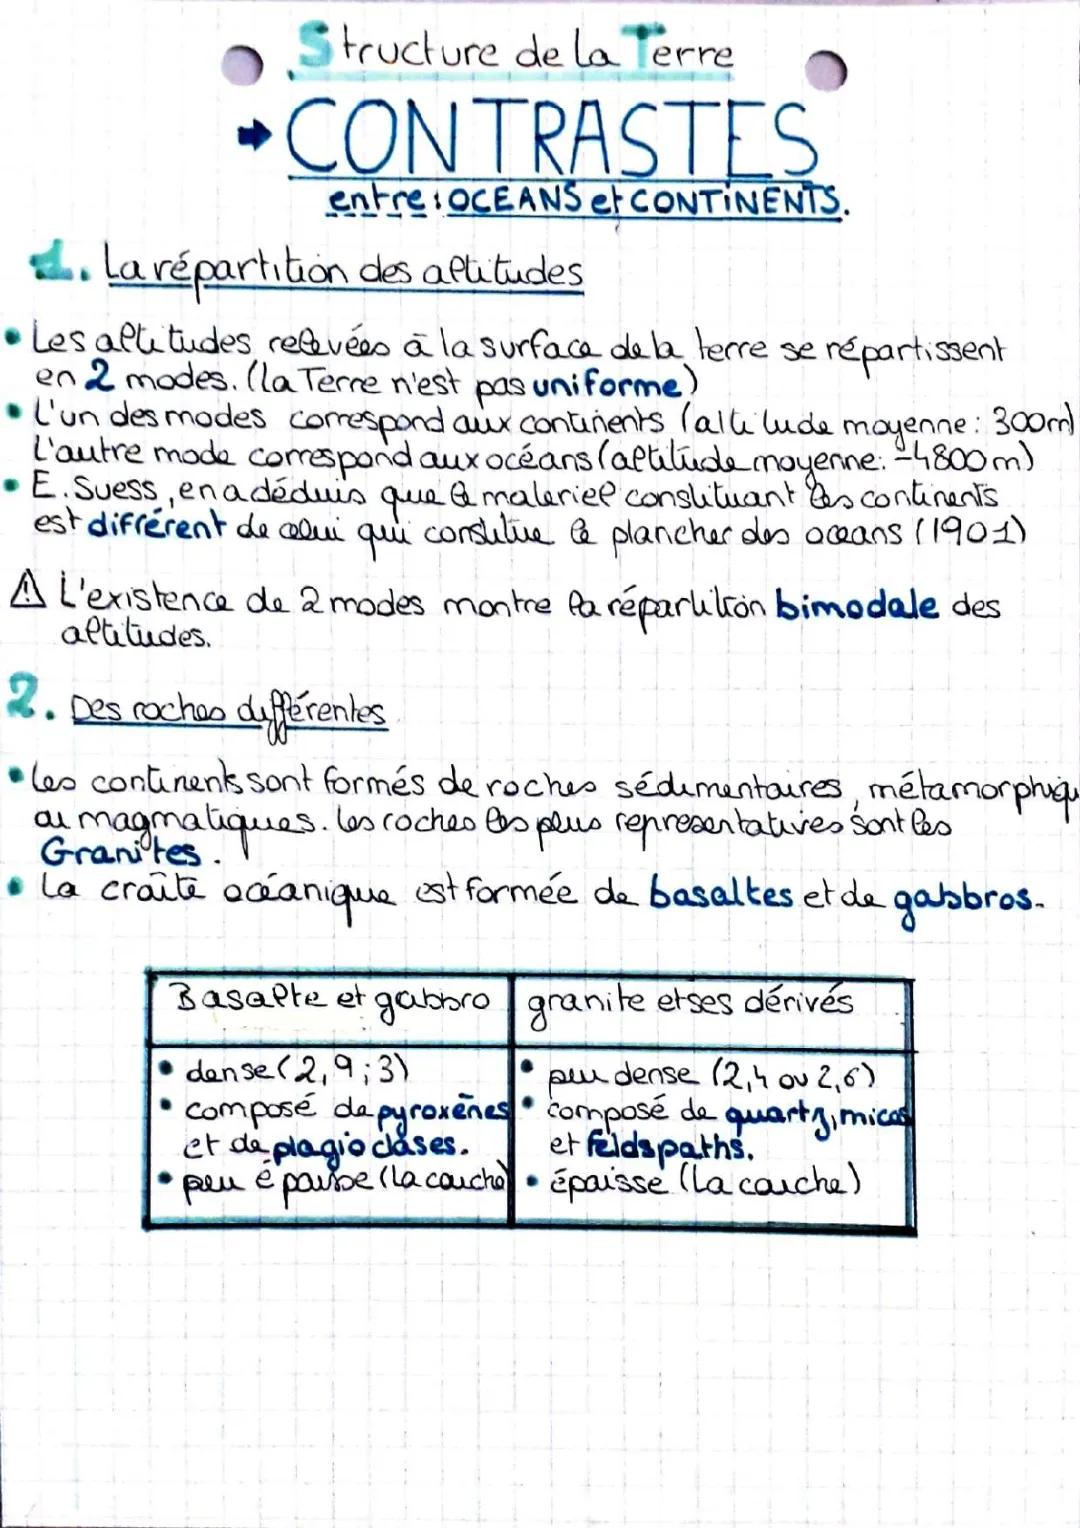 Structure de la Terre
→ CONTRASTES
entre : OCEANS et CONTINENTS.
1. La répartition des altitudes
• Les altitudes relevées à la surface de la terre se répartissent
en 2 modes. (la Terre n'est pas uniforme)
• L'un des modes correspond aux continents (altitude moyenne : 300m)
L'autre mode correspond aux océans (altitude moyenne : -4800m)
• E. Suess, en a déduis que le materiel constituant les continents
est différent de celui qui constitue le plancher des oceans (1901)
⚠ L'existence de 2 modes montre la répartition bimodale des
altitudes.
2. Des roches différentes
• les continents sont formés de roches sédimentaires, métamorphiqu
ou magmatiques. les roches les plus representatives sont les
Granites.
• La croîte océanique est formée de basaltes et de gabbros.
Basalte et gabbro granite et ses dérivés
• dense (2,9 ; 3) • peu dense (2,4 ou 2,6)
• composé de pyroxènes • composé de quartz, micas
et de plagioclases. et feldspaths.
• peu épaisse (la couche) • épaisse (la couche)